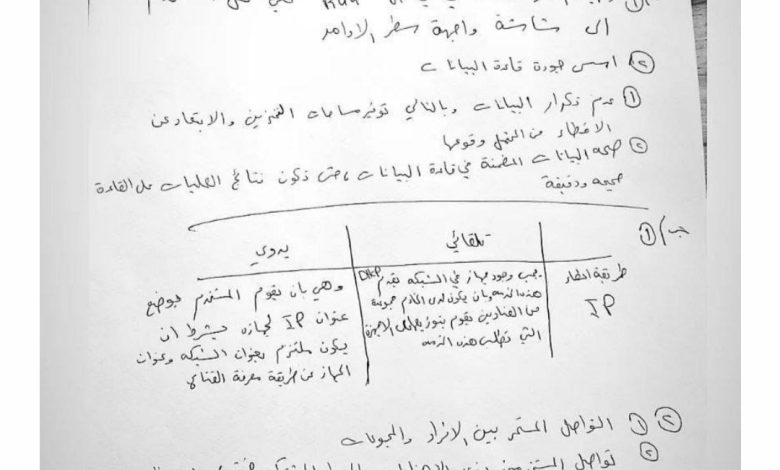 Run
الى شاشة واجهة سطر الاوامر
② اسس جودة قاعدة البيانات
① عدم تكرار البيانات وبالتالي توفير مساحات التخزين والابتعاد عن
الاخطاء من المحتمل وقوعها
② صحه البيانات المضمنة في قاعدة البيانات، حتى تكون نتائج العمليات على القاعدة
صحيحه ودقيقة
ب) ①
تلقائي
يدوي
طريقة اعطاء
IP
يجب وجود جهاز في الشبكه يقدم DHCP
هذه الخدمه وبان يكون لدى الخادم مجموعة
من العناوين يقوم بتوزيعها على الاجهزة
التي تطلب هذه الخدمه
وهي بان يقوم المستخدم بوضع
عنوان IP لجهازه بشرط ان
يكون ملتزم بعنوان الشبكه وعنوان
الجهاز عن طريقة معرفة القناع
② ① التواصل المستمر بين الافراد والمجموعات
②